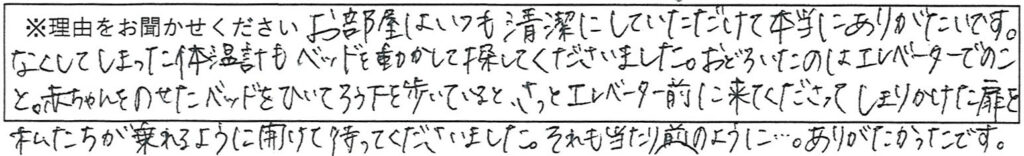 ※理由をお聞かせください お部屋はいつも清潔にしていただけて本当にありがたいです。
なくしてしまった体温計もベッドを動かして探してくださいました。おどろいたのはエレベーターでのこ
と。赤ちゃんをのせたベッドをひいてろう下を歩いていると、さっとエレベーター前に来てくださってしまりかけた扉を
私たちが乗れるように開けて待ってくださいました。それも当たり前のように…。ありがたかったです。